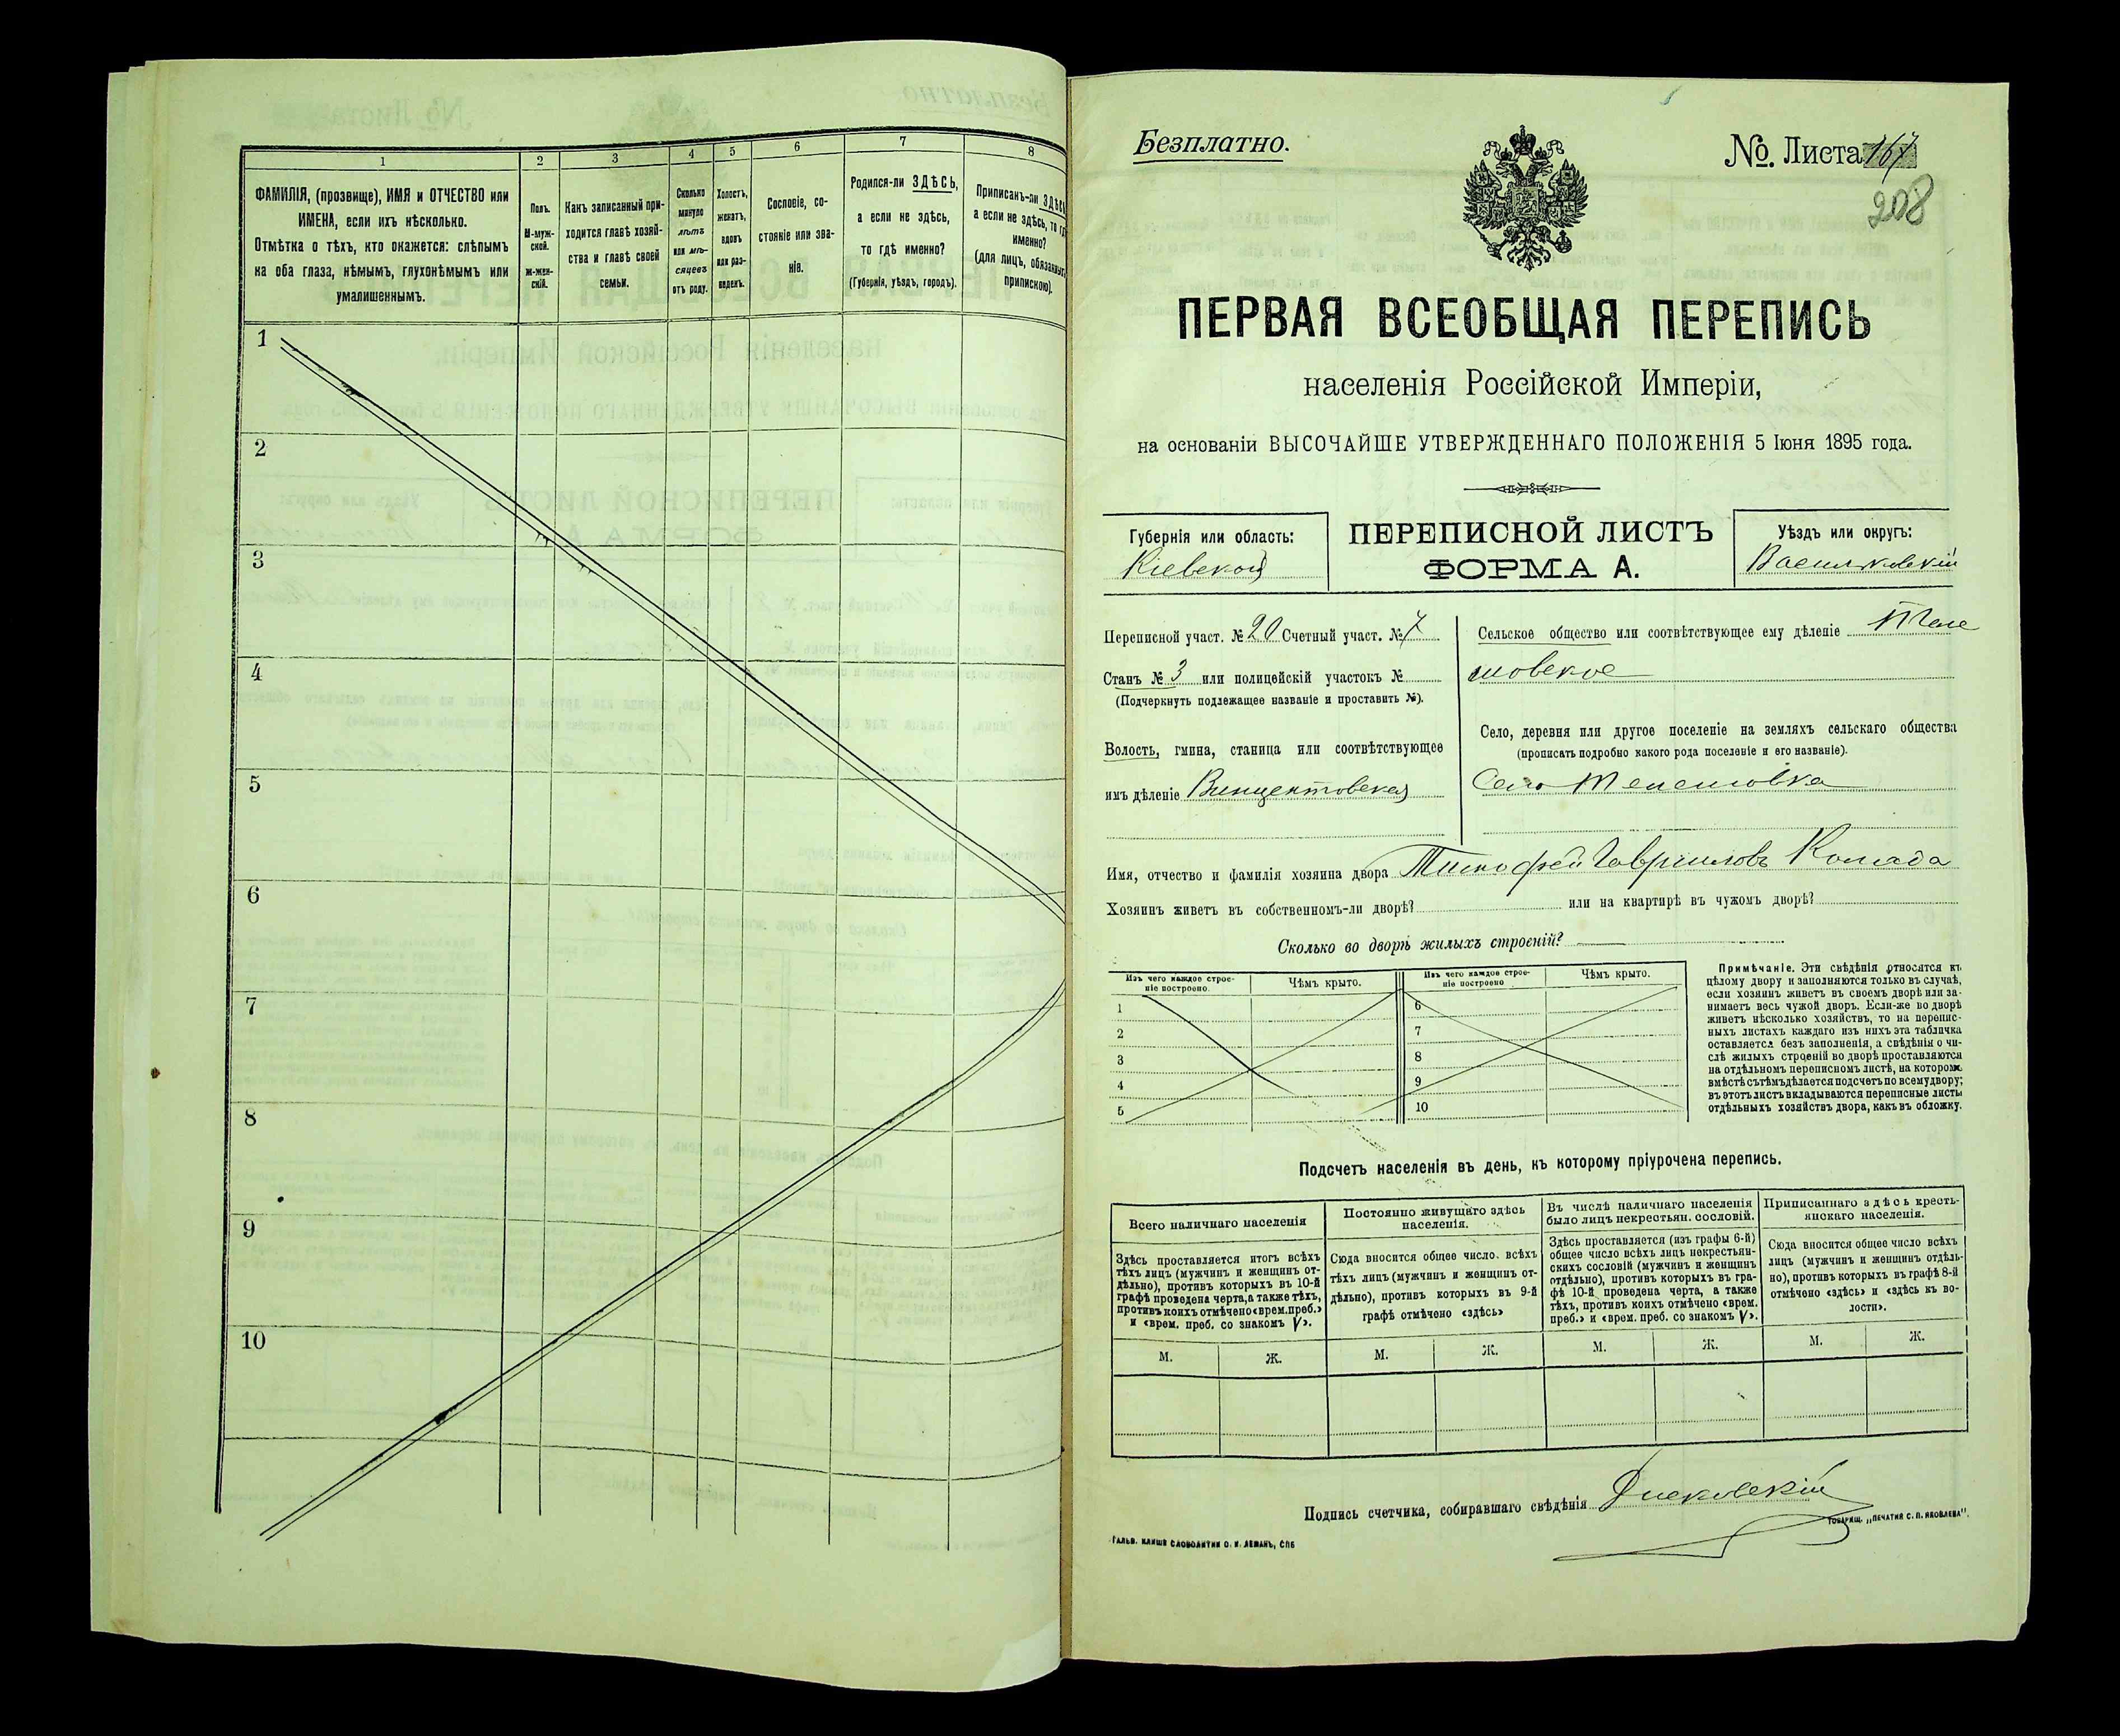 1 2 3 4 5 6 7 8
ФАМИЛІЯ, (прозвище), ИМЯ и ОТЧЕСТВО или
ИМЕНА, если ихъ нѣсколько.
Отмѣтка о тѣхъ, кто окажется: слѣпымъ
на оба глаза, нѣмымъ, глухонѣмымъ или
умалишеннымъ.
Полъ.
М-муж-
ской.
ж-жен-
скій.
Какъ записанный при-
ходится главѣ хозяй-
ства и главѣ своей
семьи.
Сколько
минуло
лѣтъ
или мѣ-
сяцевъ
отъ роду.
Холостъ,
женатъ,
вдовъ
или раз-
веденъ.
Сословіе, со-
стояніе или зва-
ніе.
Родился-ли ЗДѢСЬ,
а если не здѣсь,
то гдѣ именно?
(Губернія, уѣздъ, городъ).
Приписанъ-ли ЗДѢСЬ
а если не здѣсь, то
именно?
(для лицъ,
припискою).
1
2
3
4
5
6
7
8
9
10
Безплатно.
№. Листа 167
208
ПЕРВАЯ ВСЕОБЩАЯ ПЕРЕПИСЬ
населенія Россійской Имперіи,
на основаніи ВЫСОЧАЙШЕ УТВЕРЖДЕННАГО ПОЛОЖЕНІЯ 5 Іюня 1895 года.
Губернія или область:
Кіевской
ПЕРЕПИСНОЙ ЛИСТЪ
ФОРМА А.
Уѣздъ или округъ:
Васильковскій
Переписной участ. № 20 Счетный участ. № 7
Станъ № 3 или полицейскій участокъ №
(Подчеркнуть подлежащее названіе и проставить №).
Волость, гмина, станица или соотвѣтствующее
имъ дѣленіе Винцентовская
Сельское общество или соотвѣтствующее ему дѣленіе Теле
шовское
Село, деревня или другое поселеніе на земляхъ сельскаго общества
(прописать подробно какого рода поселеніе и его названіе).
Село Телешовка
Имя, отчество и фамилія хозяина двора Тимофей Гавриловъ Коляда
Хозяинъ живетъ въ собственномъ-ли дворѣ? или на квартирѣ въ чужомъ дворѣ?
Сколько во дворѣ жилыхъ строеній?
Изъ чего каждое строе-
ніе построено.
Чѣмъ крыто.
Изъ чего каждое строе-
ніе построено
Чѣмъ крыто.
1 6
2 7
3 8
4 9
5 10
Примѣчаніе. Эти свѣдѣнія относятся къ
цѣлому двору и заполняются только въ случаѣ,
если хозяинъ живетъ въ своемъ дворѣ или за-
нимаетъ весь чужой дворъ. Если-же во дворѣ
живетъ нѣсколько хозяйствъ, то на перепис-
ныхъ листахъ каждаго изъ нихъ эта табличка
оставляется безъ заполненія, а свѣдѣнія о чи-
слѣ жилыхъ строеній во дворѣ проставляются
на отдѣльномъ переписномъ листѣ, на которомъ
вмѣстѣ съ тѣмъ дѣлается подсчетъ по всему двору;
въ этотъ листъ вкладываются переписные листы
отдѣльныхъ хозяйствъ двора, какъ въ обложку.
Подсчетъ населенія въ день, къ которому пріурочена перепись.
Всего наличнаго населенія
Здѣсь проставляется итогъ всѣхъ
тѣхъ лицъ (мужчинъ и женщинъ от-
дѣльно), противъ которыхъ въ 10-й
графѣ проведена черта, а также тѣхъ,
противъ коихъ отмѣчено «врем. преб.»
и «врем. преб. со знакомъ V».
Постоянно живущаго здѣсь
населенія.
Сюда вносится общее число всѣхъ
тѣхъ лицъ (мужчинъ и женщинъ от-
дѣльно), противъ которыхъ въ 9-й
графѣ отмѣчено «здѣсь»
Въ числѣ наличнаго населенія
было лицъ некрестьян. сословій.
Здѣсь проставляется (изъ графы 6-й)
общее число всѣхъ лицъ некрестьян-
скихъ сословій (мужчинъ и женщинъ
отдѣльно), противъ которыхъ въ гра-
фѣ 10-й проведена черта, а также
тѣхъ, противъ коихъ отмѣчено «врем.
преб.» и «врем. преб. со знакомъ V».
Приписаннаго здѣсь кресть-
янскаго населенія.
Сюда вносится общее число всѣхъ
лицъ (мужчинъ и женщинъ отдѣль-
но), противъ которыхъ въ графѣ 8-й
отмѣчено «здѣсь» и «здѣсь къ во-
лости».
М. Ж. М. Ж. М. Ж. М. Ж.
Подпись счетчика, собиравшаго свѣдѣнія
ГАЛЬВ. КЛИШЕ СЛОВОЛИТНИ О. И. ЛЕМАНЪ, СПБ
ТОВАРИЩ. „ПЕЧАТНЯ С. П. ЯКОВЛЕВА".